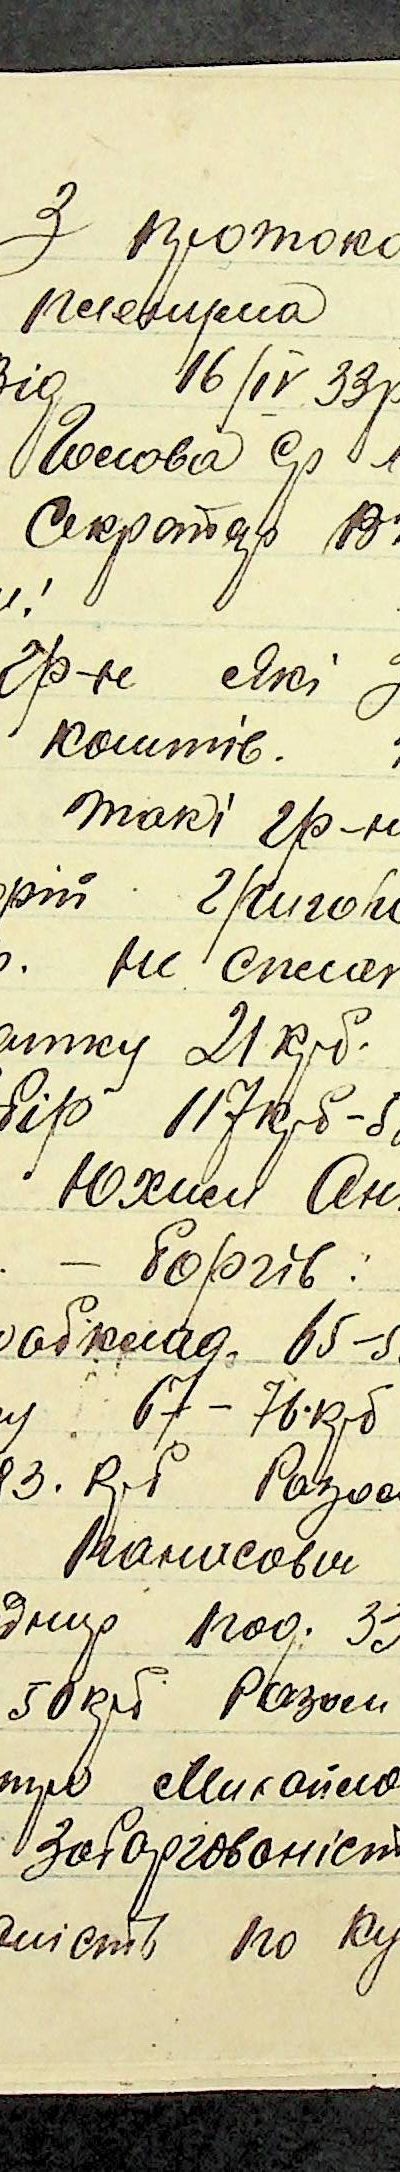 З протоко
пленума
Від 16/IV 33р
Голова С/р
Секретар
и!
гр-не які
коштів.
такі гр-н
орій Григо
р. не сплат
атку 21 крб.
бір 117 крб-5
Юхим Ан
. — боргів:
обклад. 65-5
у 67-76 крб
83. крб Разом
Панасович
днир под. 33
50 крб Разом
тро Михайло
Заборгованіст
аність по ку